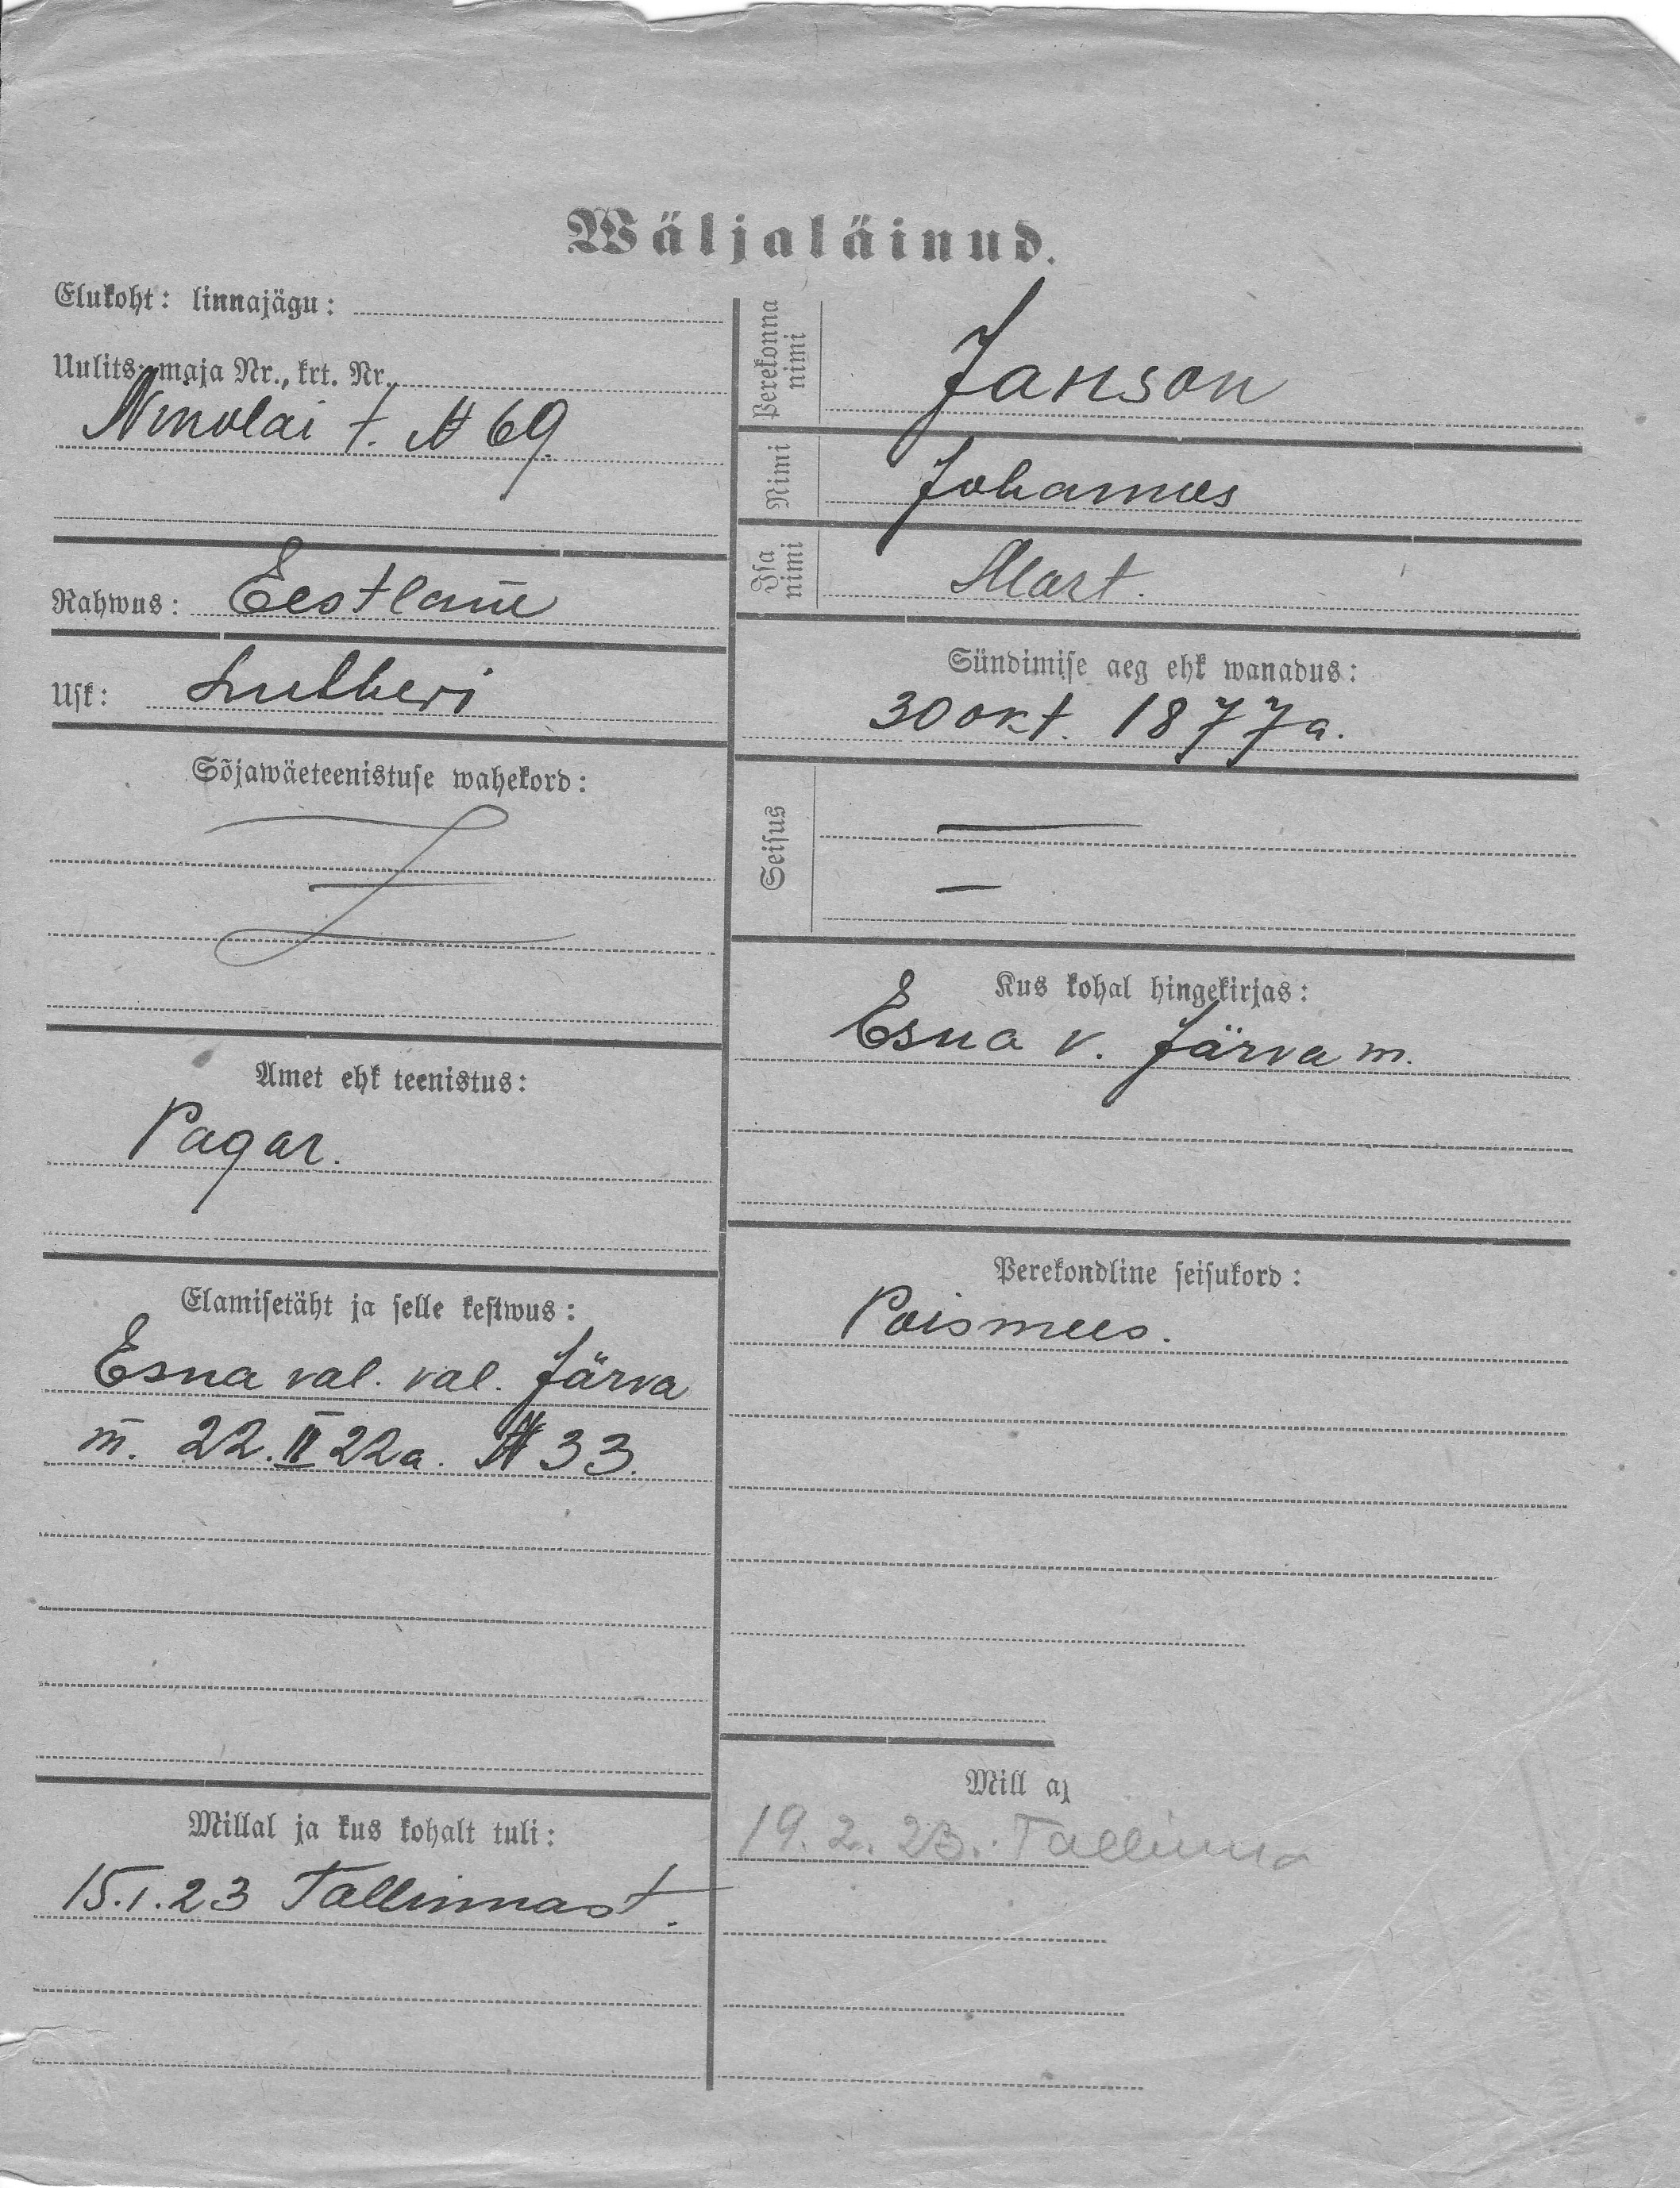 Wäljaläinud.
Elukoht: linnajägu:
Uulits, maja Nr., krt. Nr.
Nikolai t. № 69.
Rahwus: Eestlane
Usk: Lutheri
Sõjawäeteenistuse wahekord:
Amet ehk teenistus:
Pagar.
Elamisetäht ja selle kestwus:
Esna val. val. Järva
m. 22. II 22 a. № 33.
Millal ja kus kohalt tuli:
15.1.23 Tallinnast.
Perekonna nimi
Janson
Nimi
Johannes
Isa nimi
Mart.
Sündimise aeg ehk wanadus:
30 okt. 1877 a.
Seisus
Kus kohal hingekirjas:
Esna v. Järva m.
Perekondline seisukord:
Poismees.
Mill aj
19.2.23. Tallinna